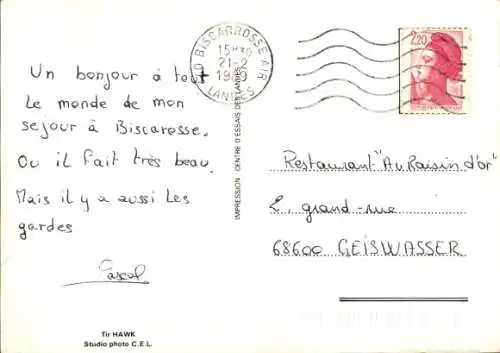 Un bonjour à tout
Le monde de mon
sejour à Biscarosse.
Ou il fait très beau.
Mais il y a aussi les
gardes
Pascal
Tir HAWK
Studio photo C.E.L.
IMPRESSION CENTRE D'ESSAIS DES LANDES
BISCARROSSE AIR
15H
21-2
LANDES
2,20
Restaurant "Au Raisin d'or"
2, grand-rue
68600 GEISWASSER